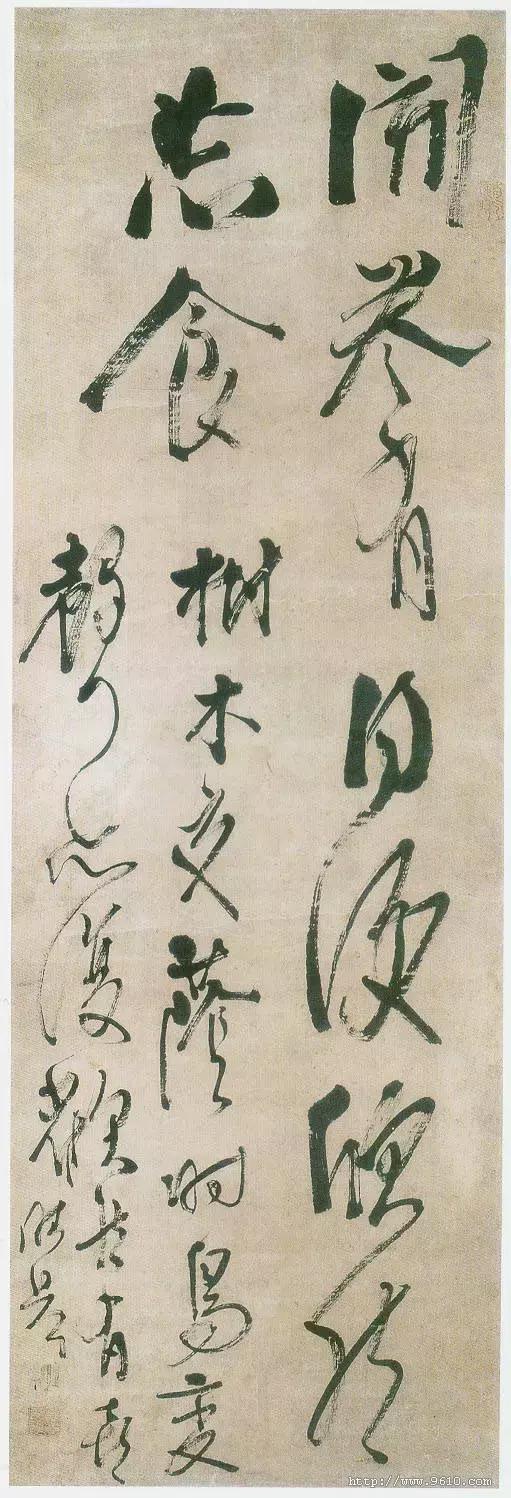 開卷有得便欣然
忘食樹木交蔭時鳥變
聲亦復歡然有喜
http://www.9610.com